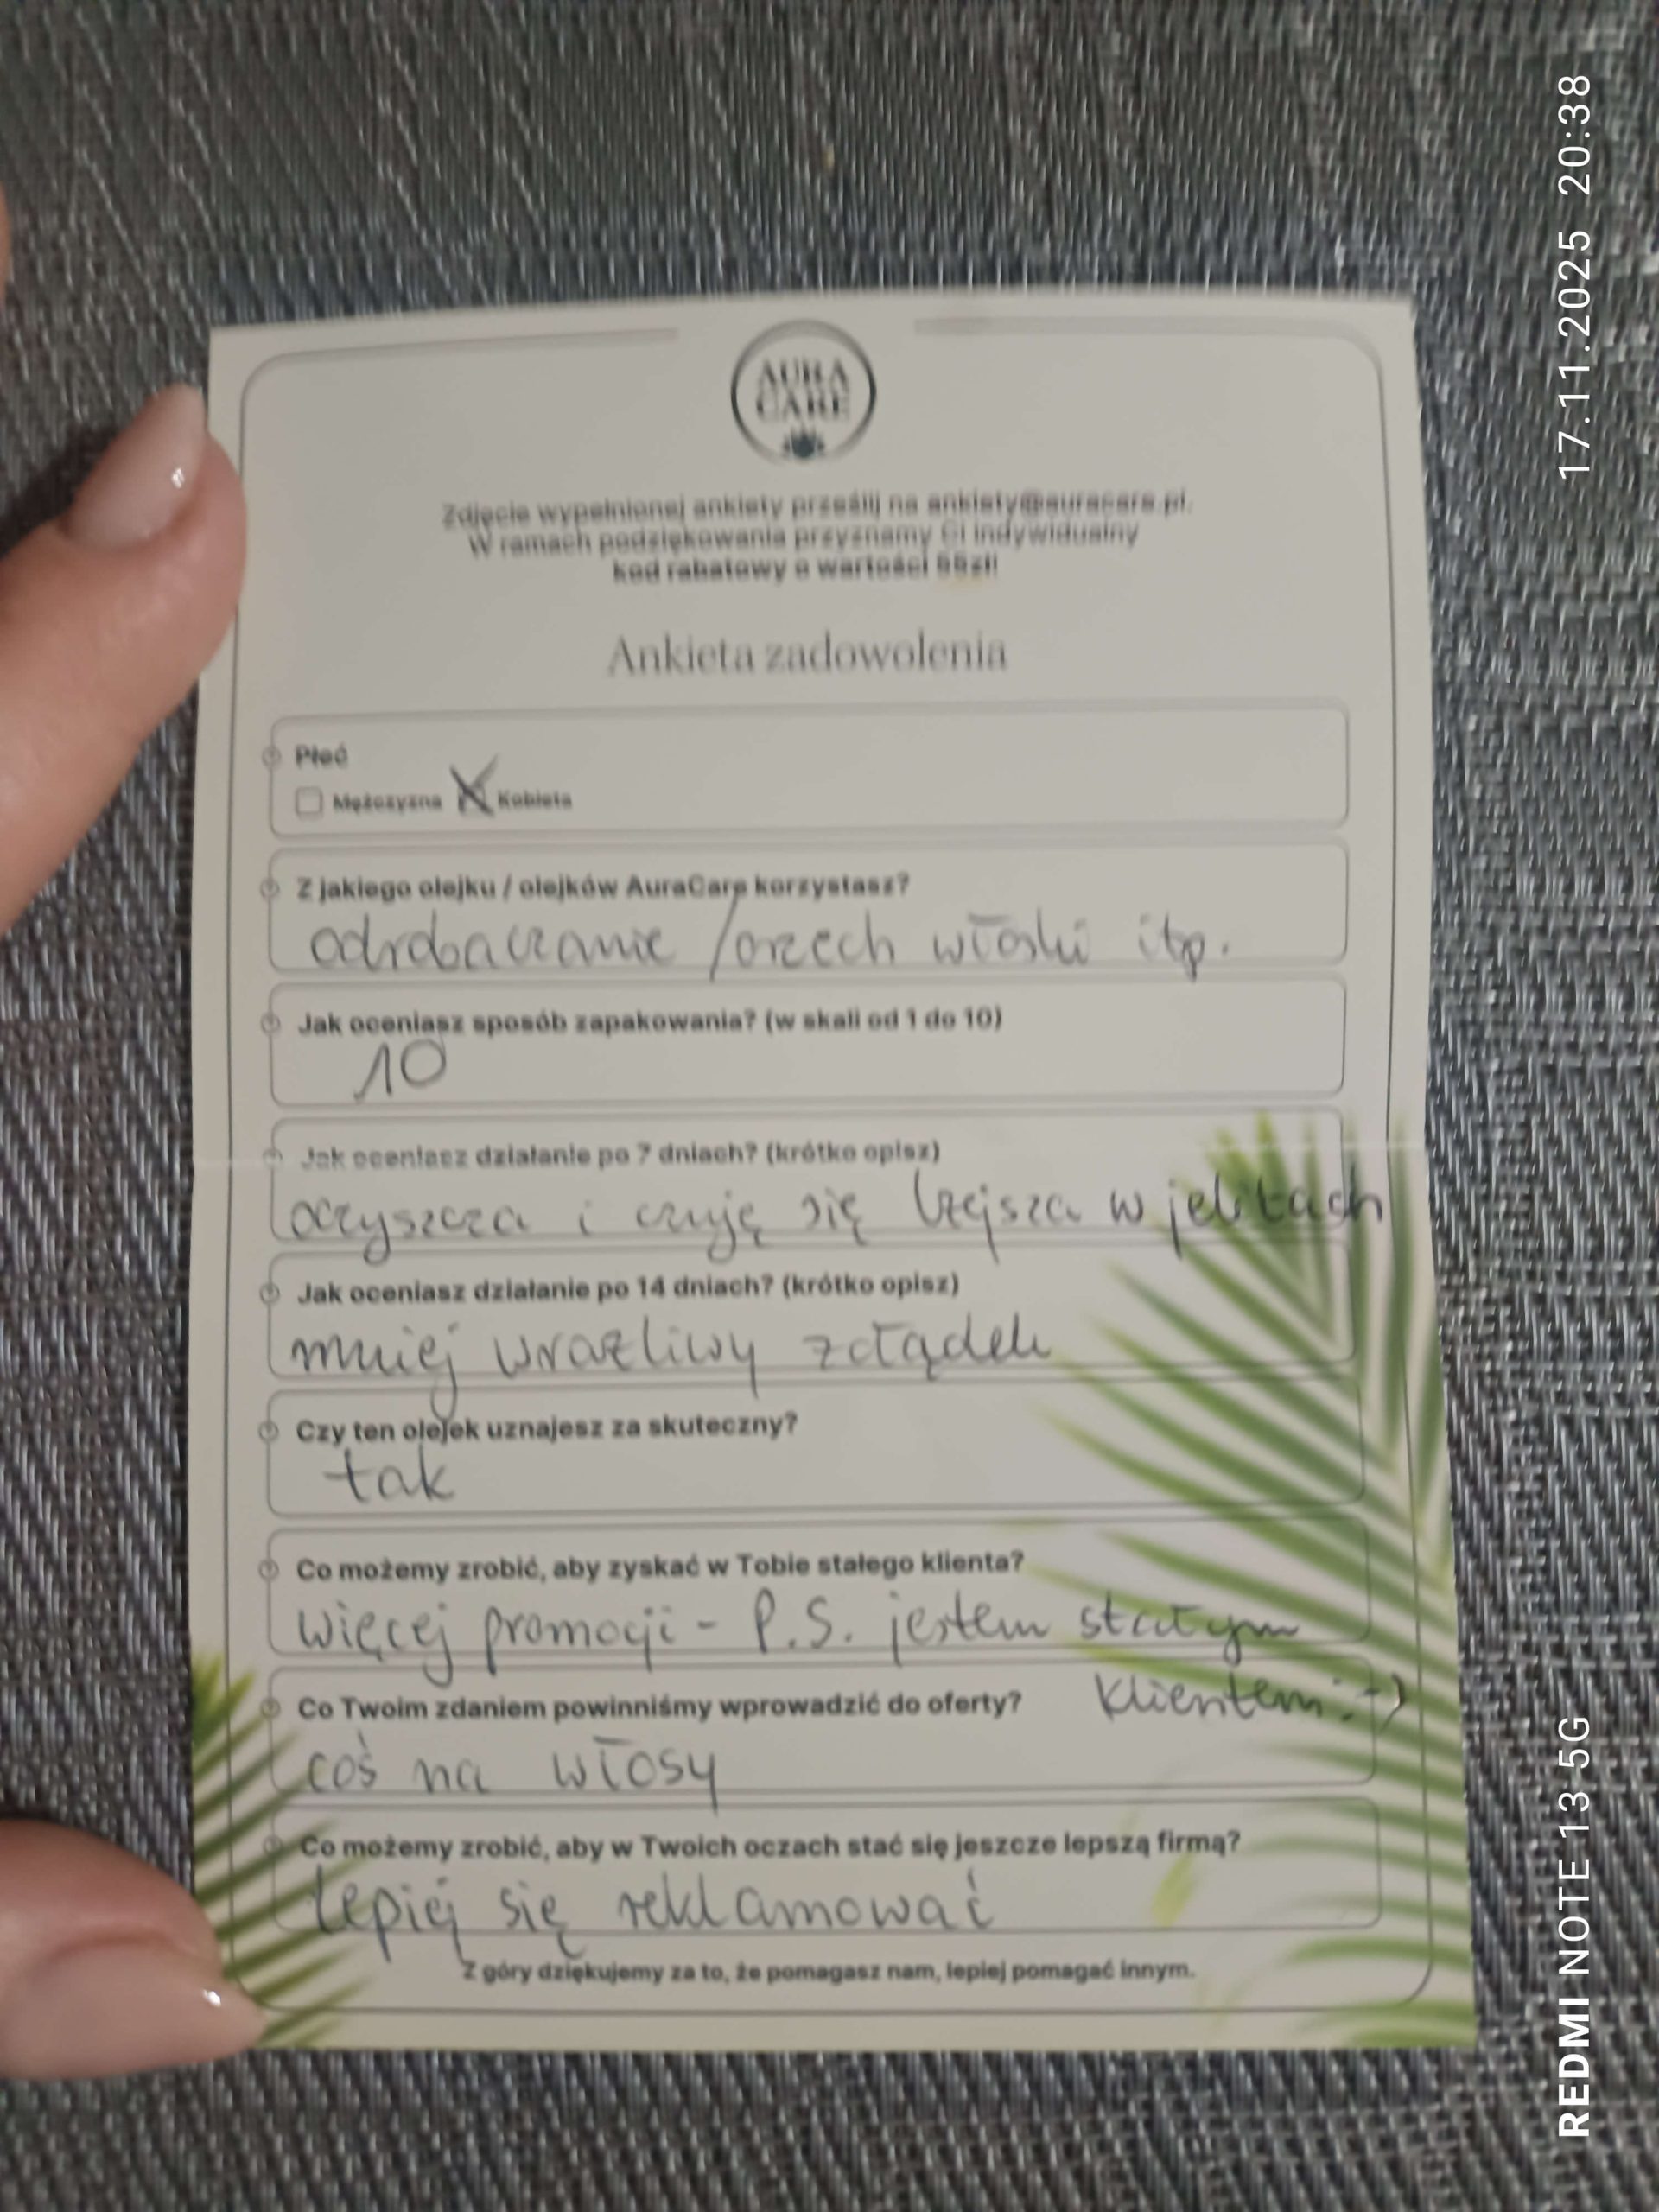 AURA
CARE
Zdjęcie wypełnionej ankiety prześlij na ankiety@auracare.pl.
W ramach podziękowania przyznamy Ci indywidualny
kod rabatowy o wartości 55zł!
Ankieta zadowolenia
Płeć
Mężczyzna X Kobieta
Z jakiego olejku / olejków AuraCare korzystasz?
odrobaczanie / orzech włoski itp.
Jak oceniasz sposób zapakowania? (w skali od 1 do 10)
10
Jak oceniasz działanie po 7 dniach? (krótko opisz)
oczyszcza i czuję się lżejsza w jelitach
Jak oceniasz działanie po 14 dniach? (krótko opisz)
mniej wrażliwy żołądek
Czy ten olejek uznajesz za skuteczny?
tak
Co możemy zrobić, aby zyskać w Tobie stałego klienta?
więcej promocji - P.S. jestem stałym
klientem :-)
Co Twoim zdaniem powinniśmy wprowadzić do oferty?
coś na włosy
Co możemy zrobić, aby w Twoich oczach stać się jeszcze lepszą firmą?
lepiej się reklamować
Z góry dziękujemy za to, że pomagasz nam, lepiej pomagać innym.
17.11.2025 20:38
REDMI NOTE 13 5G